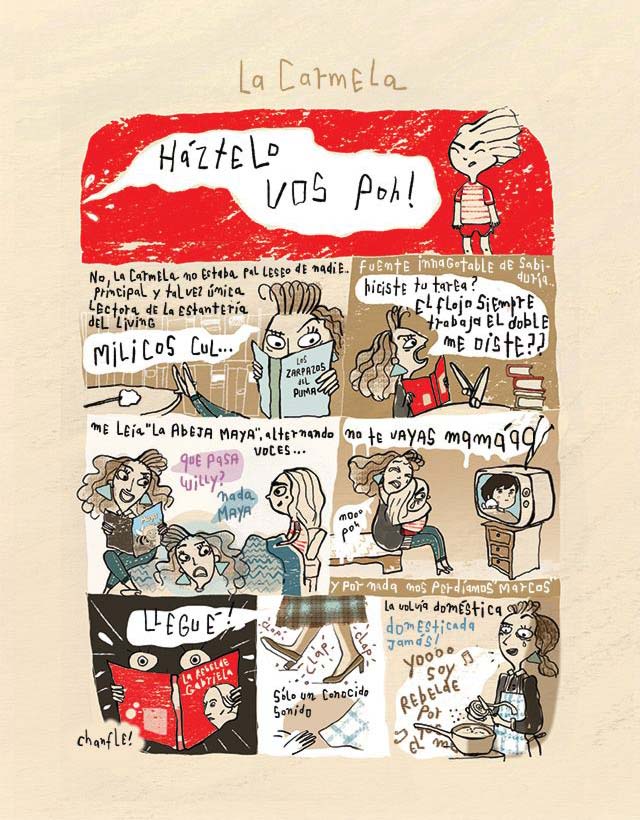 La Carmela
HÁZTELO
VOS POH!
No, la Carmela no estaba pal leseo de nadie..
principal y tal vez única
lectora de la estantería
del living
MILICOS CUL...
LOS
ZARPAZOS
del
PUMA
FUENTE INNAGOTABLE DE SABI-
DURÍA..
hiciste tu tarea?
EL FLOJO SIEMPRE
trabaja EL doble
ME OISTE??
me leía "LA ABEJA MAYA", alternando
VOCES...
QUE PASA
WILLY?
nada
MAYA
maya
no te VAYAS mamáaa
nooo
poh
y por nada nos perdíamos "MARCOS"
LLEGUÉ!
LA REBELDE
GABRIELA
chanfle!
CLAP.
CLAP.
CLAP
Sólo un conocido
Sonido
La volvía doméstica
domesticada
jamás!
YOOOO
SOY
REBELDE
POR
EL m